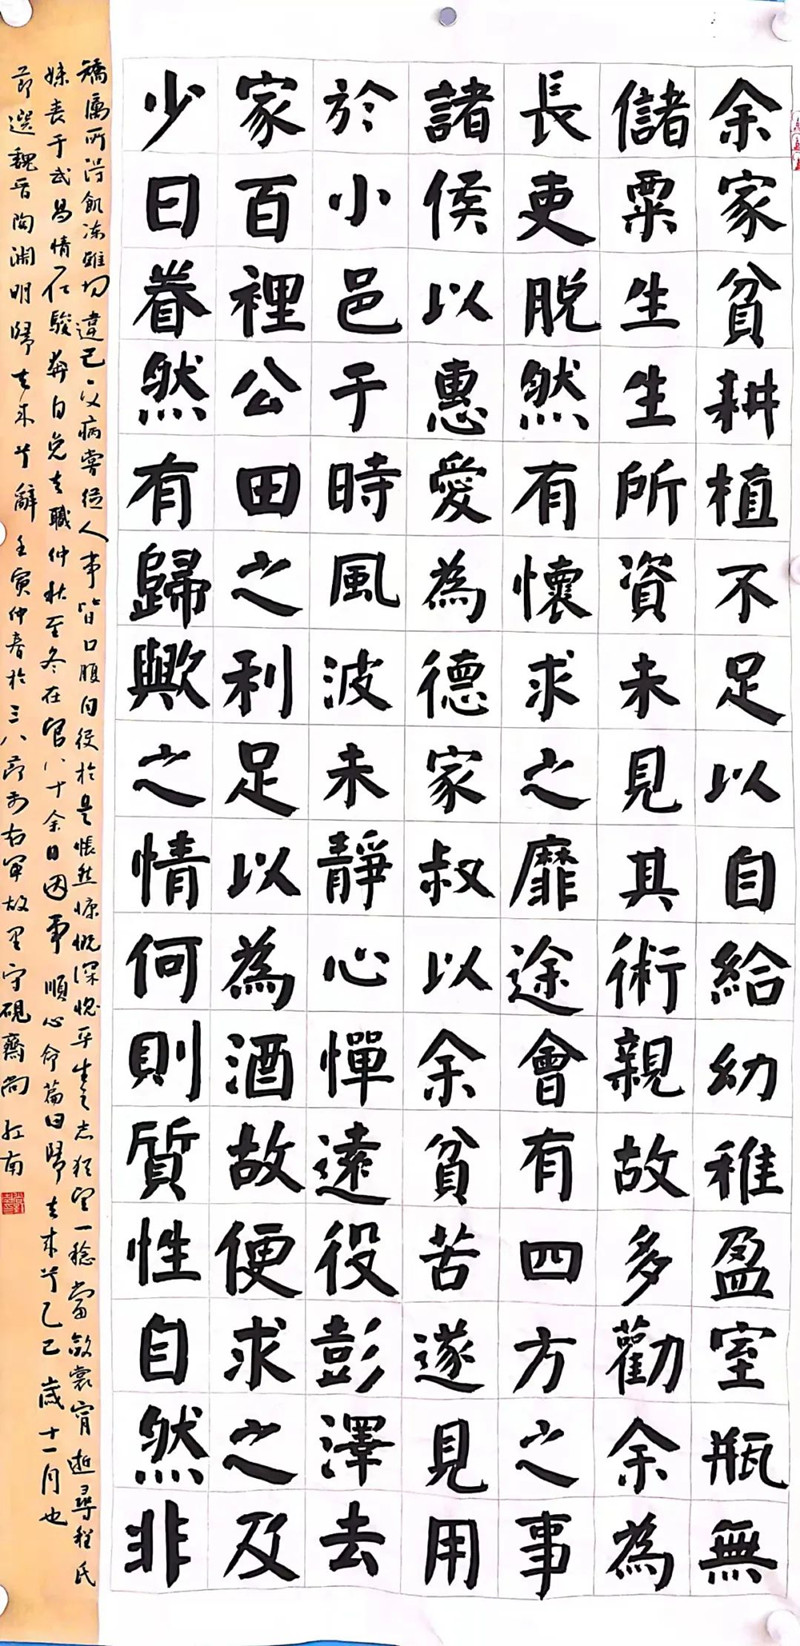 余家貧耕植不足以自給幼稚盈室瓶無
儲粟生生所資未見其術親故多勸余為
長吏脱然有懷求之靡途會有四方之事
諸侯以惠愛為德家叔以余貧苦遂見用
於小邑于時風波未靜心憚遠役彭澤去
家百裡公田之利足以為酒故便求之及
少日眷然有歸歟之情何則質性自然非
矯厲所得飢凍雖切違己交病嘗從人事皆口腹自役於是悵然慷慨深愧平生之志猶望一稔當斂裳宵逝尋程氏
妹喪于武昌情在駿奔自免去職仲秋至冬在官八十余日因事順心命篇曰歸去來兮乙巳歲十一月也
節選魏晉陶淵明歸去來兮辭壬寅仲春於三八節前右軍故里守硯齋尚紅南